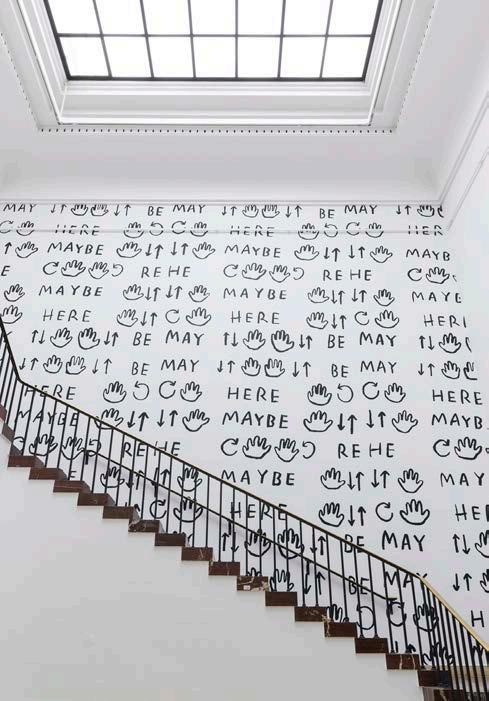 MAY BE MAY BE MAY
HERE HERE HERE
MAYBE MAYBE MAYB
E REHE REHE
MAYBE MAYBE MAYB
HERE HERE HERE
BE MAY BE MAY
BE MAY BE MAY
HERE HERE HERE
MAYBE MAYBE MAYB
REHE REHE
MAYBE MAYBE
HERE HE
BE MAY
BE MAY